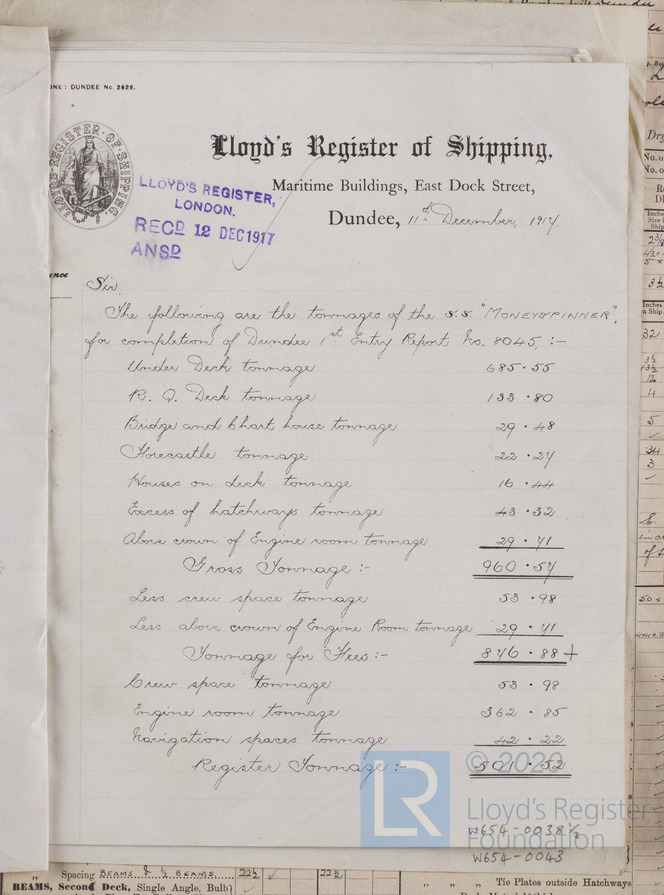 ONE: DUNDEE No. 2628.
LLOYD'S REGISTER OF SHIPPING
Lloyd's Register of Shipping,
Maritime Buildings, East Dock Street,
Dundee, 11th December, 1917.
LLOYD'S REGISTER,
LONDON.
RECD 12 DEC 1917
ANSD
ence
Sir
The following are the tonnages of the s.s. "MONEYSPINNER",
for completion of Dundee 1st Entry Report, No. 8045, :-
Under Deck tonnage 685.55
R. Q. Deck tonnage 133.80
Bridge and Chart house tonnage 29.48
Forecastle tonnage 22.27
Houses on deck tonnage 16.44
Excess of hatchways tonnage 43.32
Above crown of Engine room tonnage 29.71
Gross Tonnage :- 960.57
Less crew space tonnage 53.98
Less above crown of Engine Room tonnage 29.71
Tonnage for Fees :- 876.88 +
Crew space tonnage 53.98
Engine room tonnage 362.85
Navigation spaces tonnage 42.22
Register Tonnage :- 501.52
LR
© 2020
Lloyd's Register
Foundation
W654-0038 1/2
W654-0043
" Spacing BEAMS & 1/2 BEAMS 22½ 22½
BEAMS, Second Deck, Single Angle, Bulb) " " Tie Plates outside Hatchways